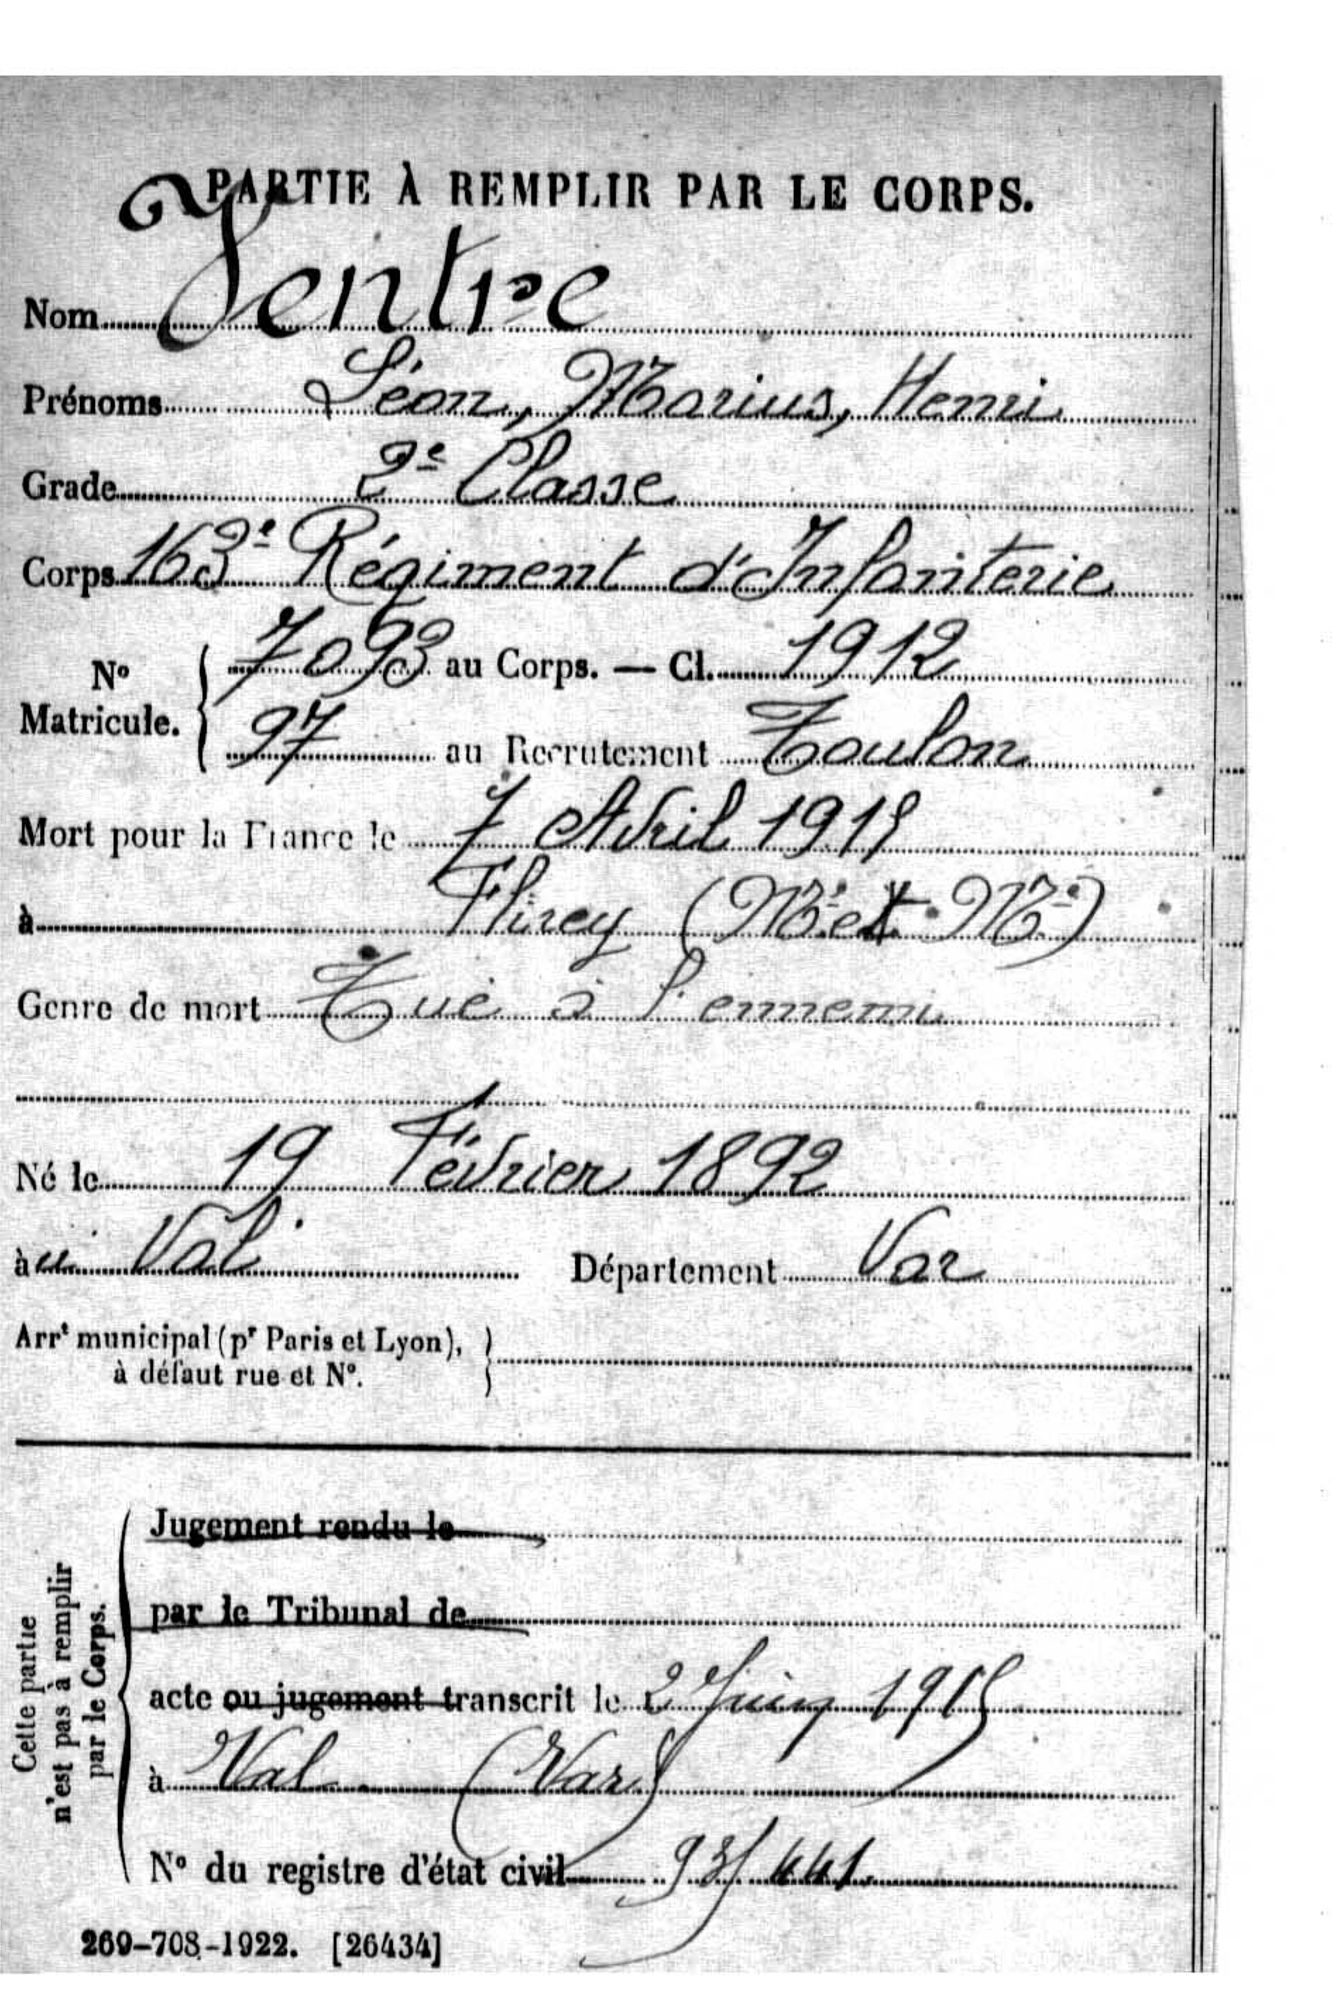 PARTIE À REMPLIR PAR LE CORPS.
Nom Ventre
Prénoms Léon, Marius, Henri
Grade 2e Classe
Corps 163e Régiment d'Infanterie
No Matricule. { 7093 au Corps. — Cl. 1912
97 au Recrutement Toulon
Mort pour la France le 7 Avril 1915
à Flirey (M.e et M.e)
Genre de mort Tué à l'ennemi
Né le 19 Février 1892
àu Val Département Var
Arrt municipal (pr Paris et Lyon), }
à défaut rue et No.
Cette partie
n'est pas à remplir
par le Corps.
Jugement rendu le
par le Tribunal de
acte ou jugement transcrit le 2 Juin 1915
à Val (Var)
No du registre d'état civil 93/441.
269-708-1922. [26434]